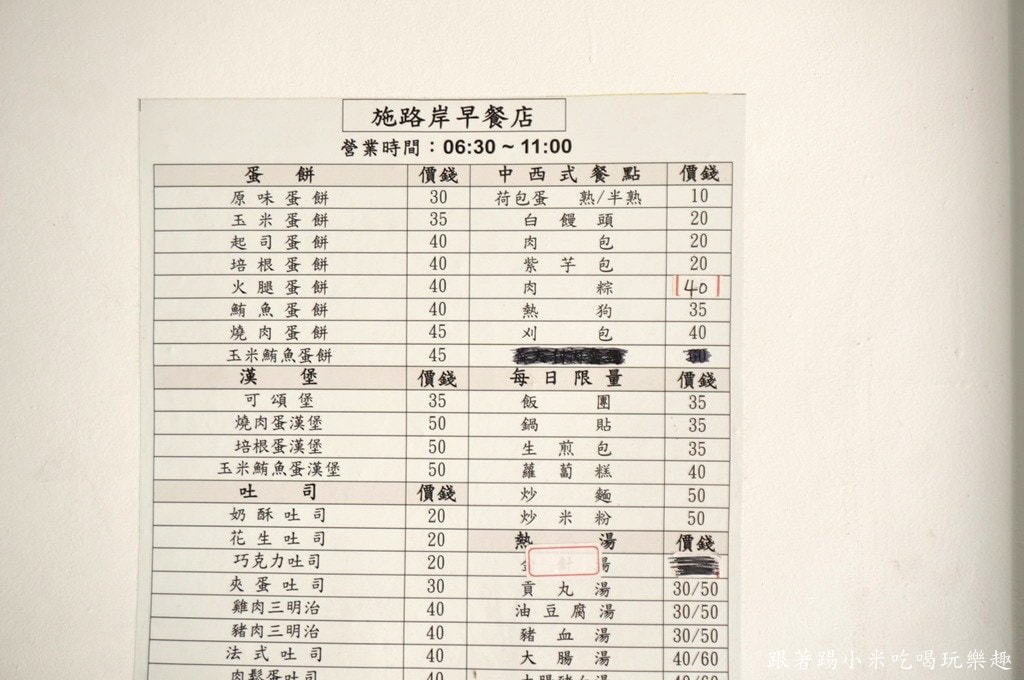 施路岸早餐店
營業時間：06:30 ~ 11:00
蛋餅 價錢 中西式餐點 價錢
原味蛋餅 30 荷包蛋 熟/半熟 10
玉米蛋餅 35 白饅頭 20
起司蛋餅 40 肉包 20
培根蛋餅 40 紫芋包 20
火腿蛋餅 40 肉粽 40
鮪魚蛋餅 40 熱狗 35
燒肉蛋餅 45 刈包 40
玉米鮪魚蛋餅 45
漢堡 價錢 每日限量 價錢
可頌堡 35 飯糰 35
燒肉蛋漢堡 50 鍋貼 35
培根蛋漢堡 50 生煎包 35
玉米鮪魚蛋漢堡 50 蘿蔔糕 40
吐司 價錢 炒麵 50
奶酥吐司 20 炒米粉 50
花生吐司 20 熱湯 價錢
巧克力吐司 20 湯
夾蛋吐司 30 貢丸湯 30/50
雞肉三明治 40 油豆腐湯 30/50
豬肉三明治 40 豬血湯 30/50
法式吐司 40 大腸湯 40/60
肉鬆蛋吐司 40 大腸豬血湯 40/60
跟著踢小米吃喝玩樂趣